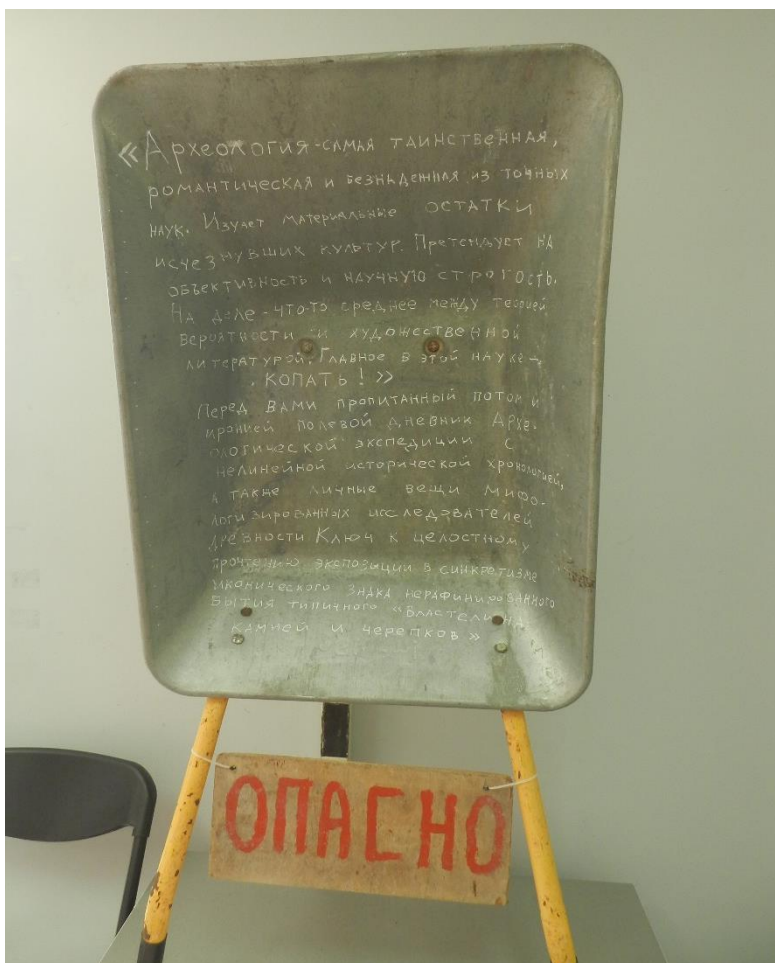 «Археология-самая таинственная,
романтическая и безнадежная из точных
наук. Изучает материальные остатки
исчезнувших культур. Претендует на
объективность и научную строгость.
На деле-что-то среднее между теорией
вероятности и художественной
литературой. Главное в этой науке-
копать!»
Перед Вами пропитанный потом и
иронией полевой дневник Архе-
ологической экспедиции с
нелинейной исторической хронологией,
а также личные вещи мифо-
логизированных исследователей
древности Ключ к целостному
прочтению экспозиции в синкретизме
иконического знака нерафинированного
бытия типичного «Властелина
камней и черепков»
ОПАСНО